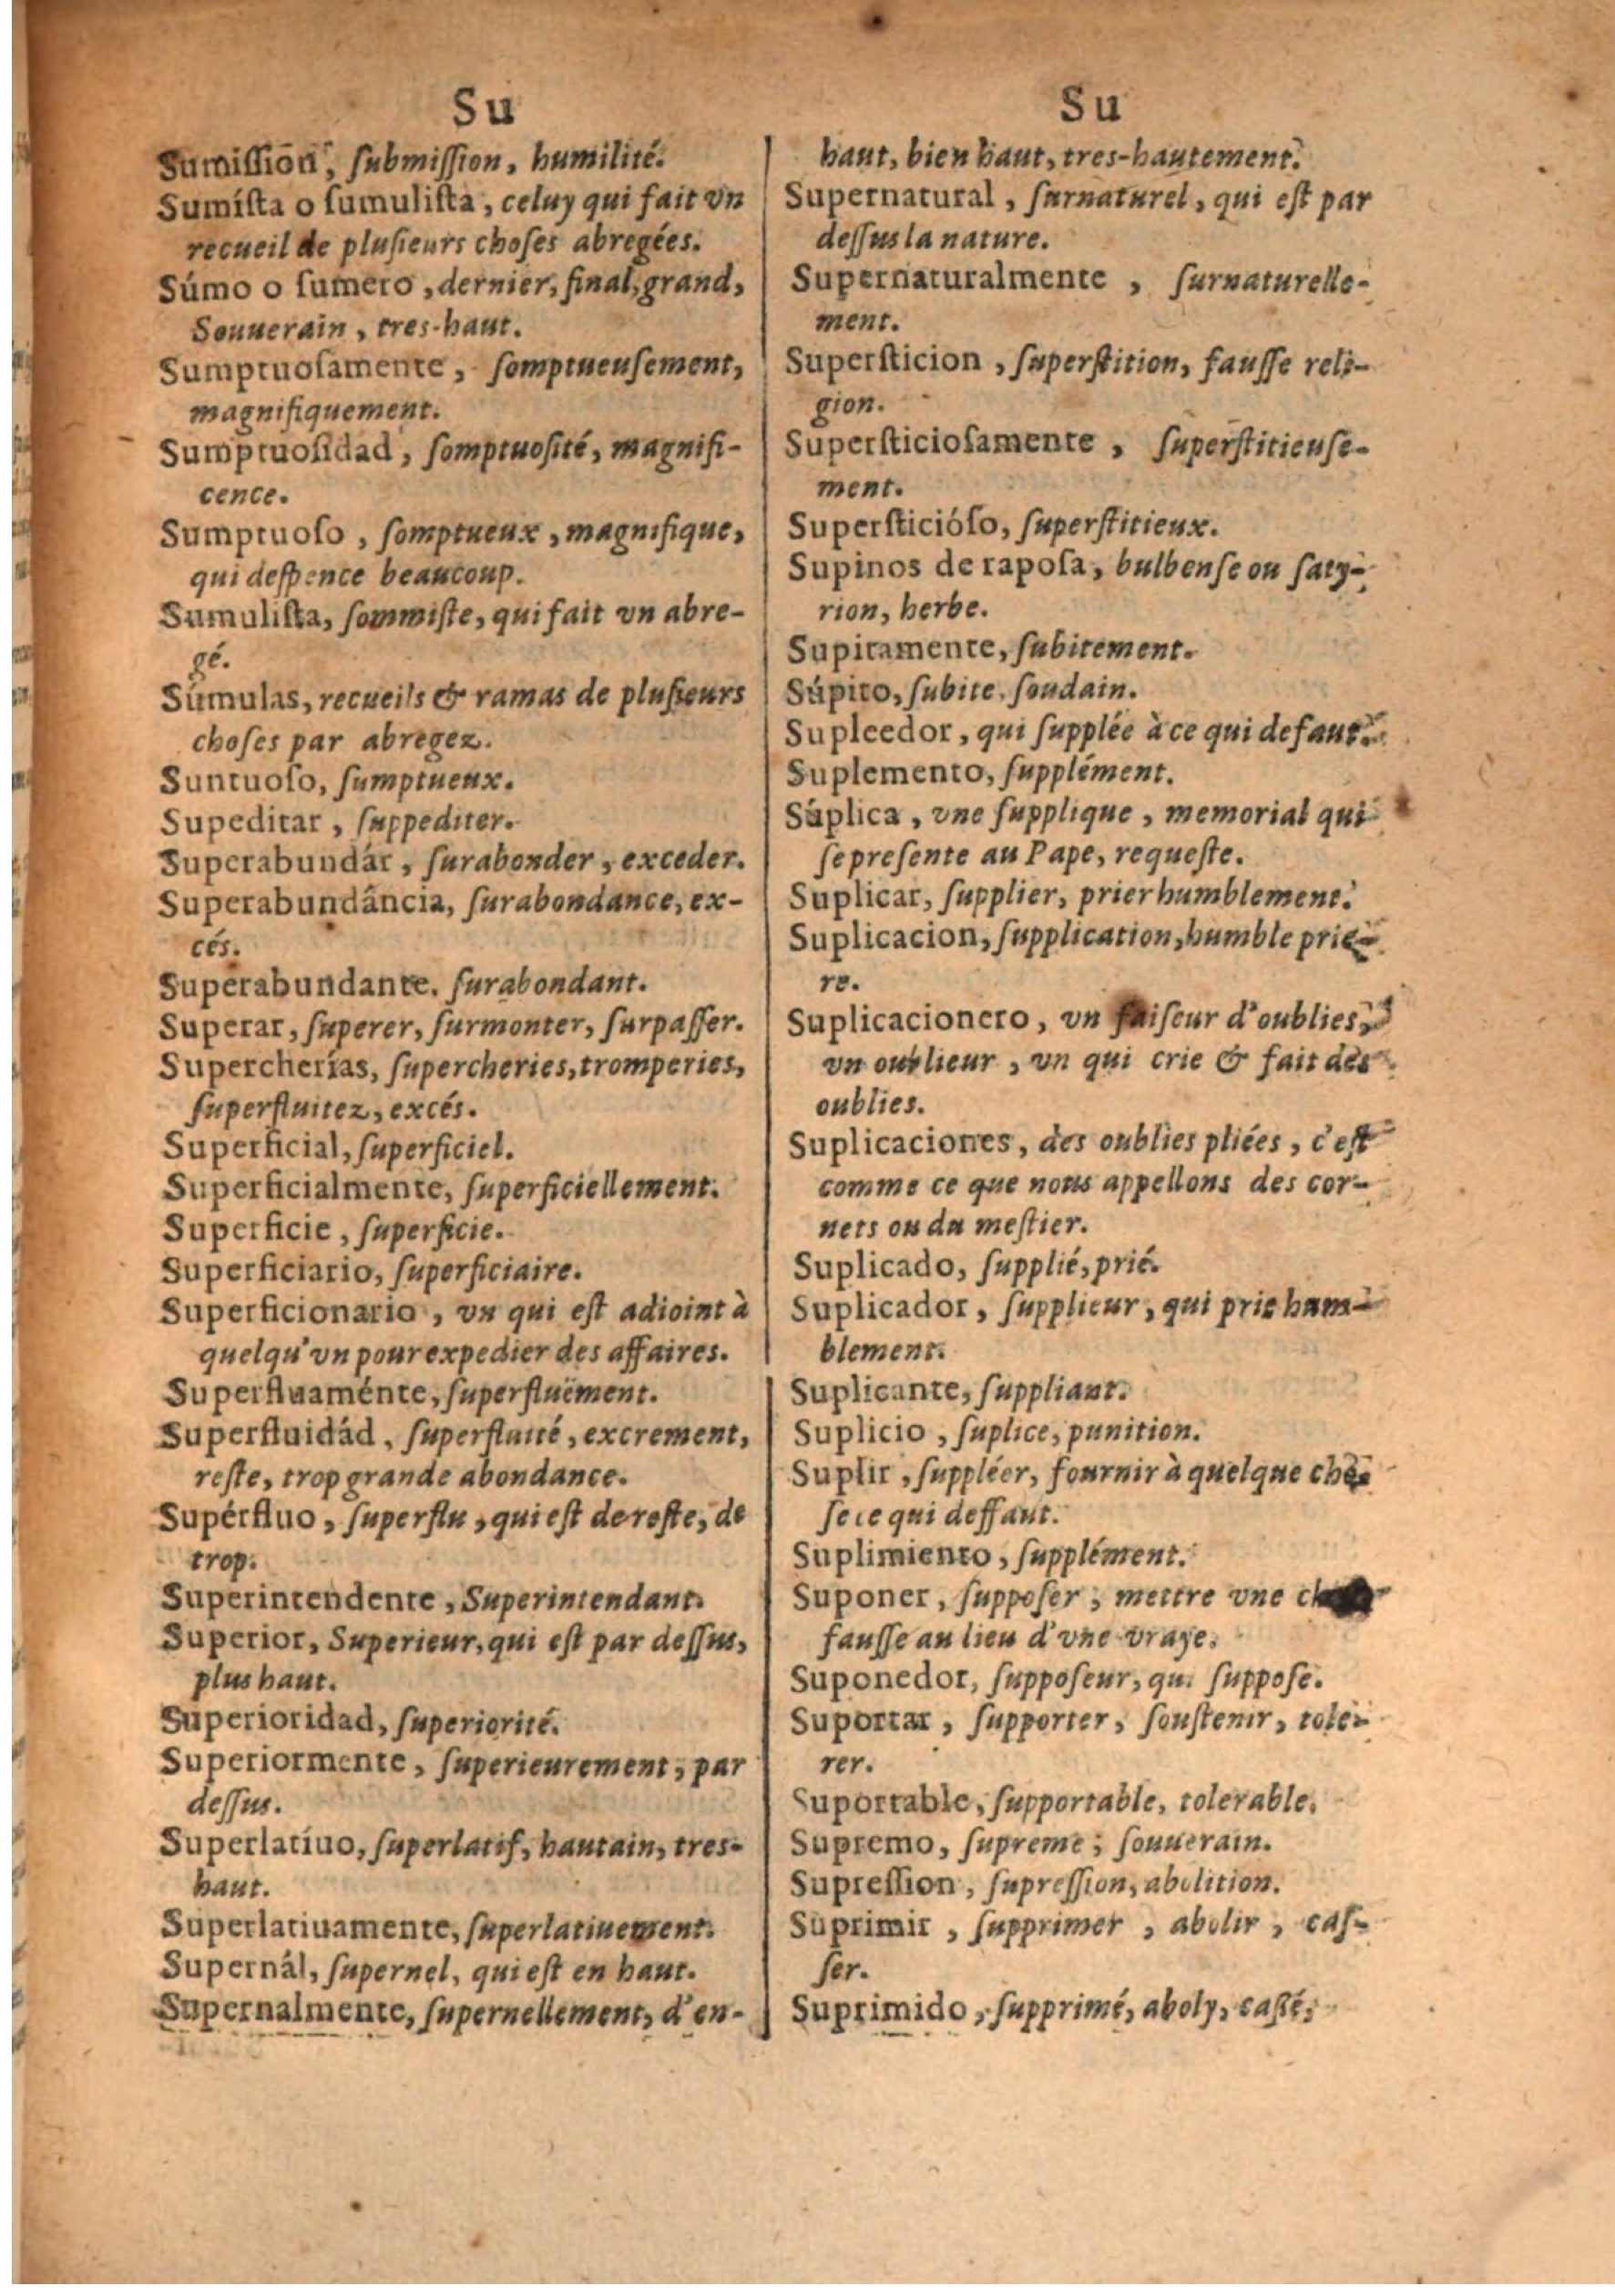 Su
Sumiſſion, ſubmiſſion, humilité.
Sumíſta o ſumuliſta, celuy qui fait vn
recueil de pluſieurs choſes abregées.
Súmo o ſumero, dernier, final, grand,
Souuerain, tres-haut.
Sumptuoſamente, ſomptueuſement,
magnifiquement.
Sumptuoſidad, ſomptuoſité, magnifi-
cence.
Sumptuoſo, ſomptueux, magnifique,
qui deſpence beaucoup.
Sumuliſta, ſommiſte, qui fait vn abre-
gé.
Súmulas, recueils & ramas de pluſieurs
choſes par abregez.
Suntuoſo, ſumptueux.
Supeditar, ſuppediter.
Superabundár, ſurabonder, exceder.
Superabundância, ſurabondance, ex-
cés.
Superabundante. ſurabondant.
Superar, ſuperer, ſurmonter, ſurpaſſer.
Supercherías, ſupercheries, tromperies,
ſuperfluitez, excés.
Superficial, ſuperficiel.
Superficialmente, ſuperficiellement.
Superficie, ſuperficie.
Superficiario, ſuperficiaire.
Superficionario, vn qui eſt adioint à
quelqu'vn pour expedier des affaires.
Superfluaménte, ſuperfluëment.
Superfluidád, ſuperfluité, excrement,
reſte, trop grande abondance.
Supérfluo, ſuperflu, qui eſt de reſte, de
trop.
Superintendente, Superintendant.
Superior, Superieur, qui eſt par deſſus,
plus haut.
Superioridad, ſuperiorité.
Superiormente, ſuperieurement, par
deſſus.
Superlatíuo, ſuperlatif, hautain, tres-
haut.
Superlatiuamente, ſuperlatiuement.
Supernál, ſupernel, qui eſt en haut.
Supernalmente, ſupernellement, d'en-
Su
haut, bien haut, tres-hautement.
Supernatural, ſurnaturel, qui eſt par
deſſus la nature.
Supernaturalmente, ſurnaturelle-
ment.
Superſticion, ſuperſtition, fauſſe reli-
gion.
Superſticioſamente, ſuperſtitieuſe-
ment.
Superſticióſo, ſuperſtitieux.
Supinos de rapoſa, bulbenſe ou ſaty-
rion, herbe.
Supitamente, ſubitement.
Súpito, ſubite, ſoudain.
Supleedor, qui ſupplée à ce qui defaut.
Suplemento, ſupplément.
Súplica, vne ſupplique, memorial qui
ſe preſente au Pape, requeſte.
Suplicar, ſupplier, prier humblement.
Suplicacion, ſupplication, humble prie-
re.
Suplicacionero, vn faiſeur d'oublies,
vn oublieur, vn qui crie & fait des
oublies.
Suplicaciones, des oublies pliées, c'eſt
comme ce que nous appellons des cor-
nets ou du meſtier.
Suplicado, ſupplié, prié.
Suplicador, ſupplieur, qui prie hum-
blement.
Suplicante, ſuppliant.
Suplicio, ſuplice, punition.
Suplir, ſuppléer, fournir à quelque cho-
ſe ce qui deffaut.
Suplimiento, ſupplément.
Suponer, ſuppoſer, mettre vne
fauſſe au lieu d'vne vraye.
Suponedor, ſuppoſeur, qui ſuppoſe.
Suportar, ſupporter, ſouſtenir, tole-
rer.
Suportable, ſupportable, tolerable.
Supremo, ſupreme, ſouuerain.
Supreſſion, ſupreſſion, abolition.
Suprimir, ſupprimer, abolir, caſ-
ſer.
Suprimido, ſupprimé, aboly, caſſé,